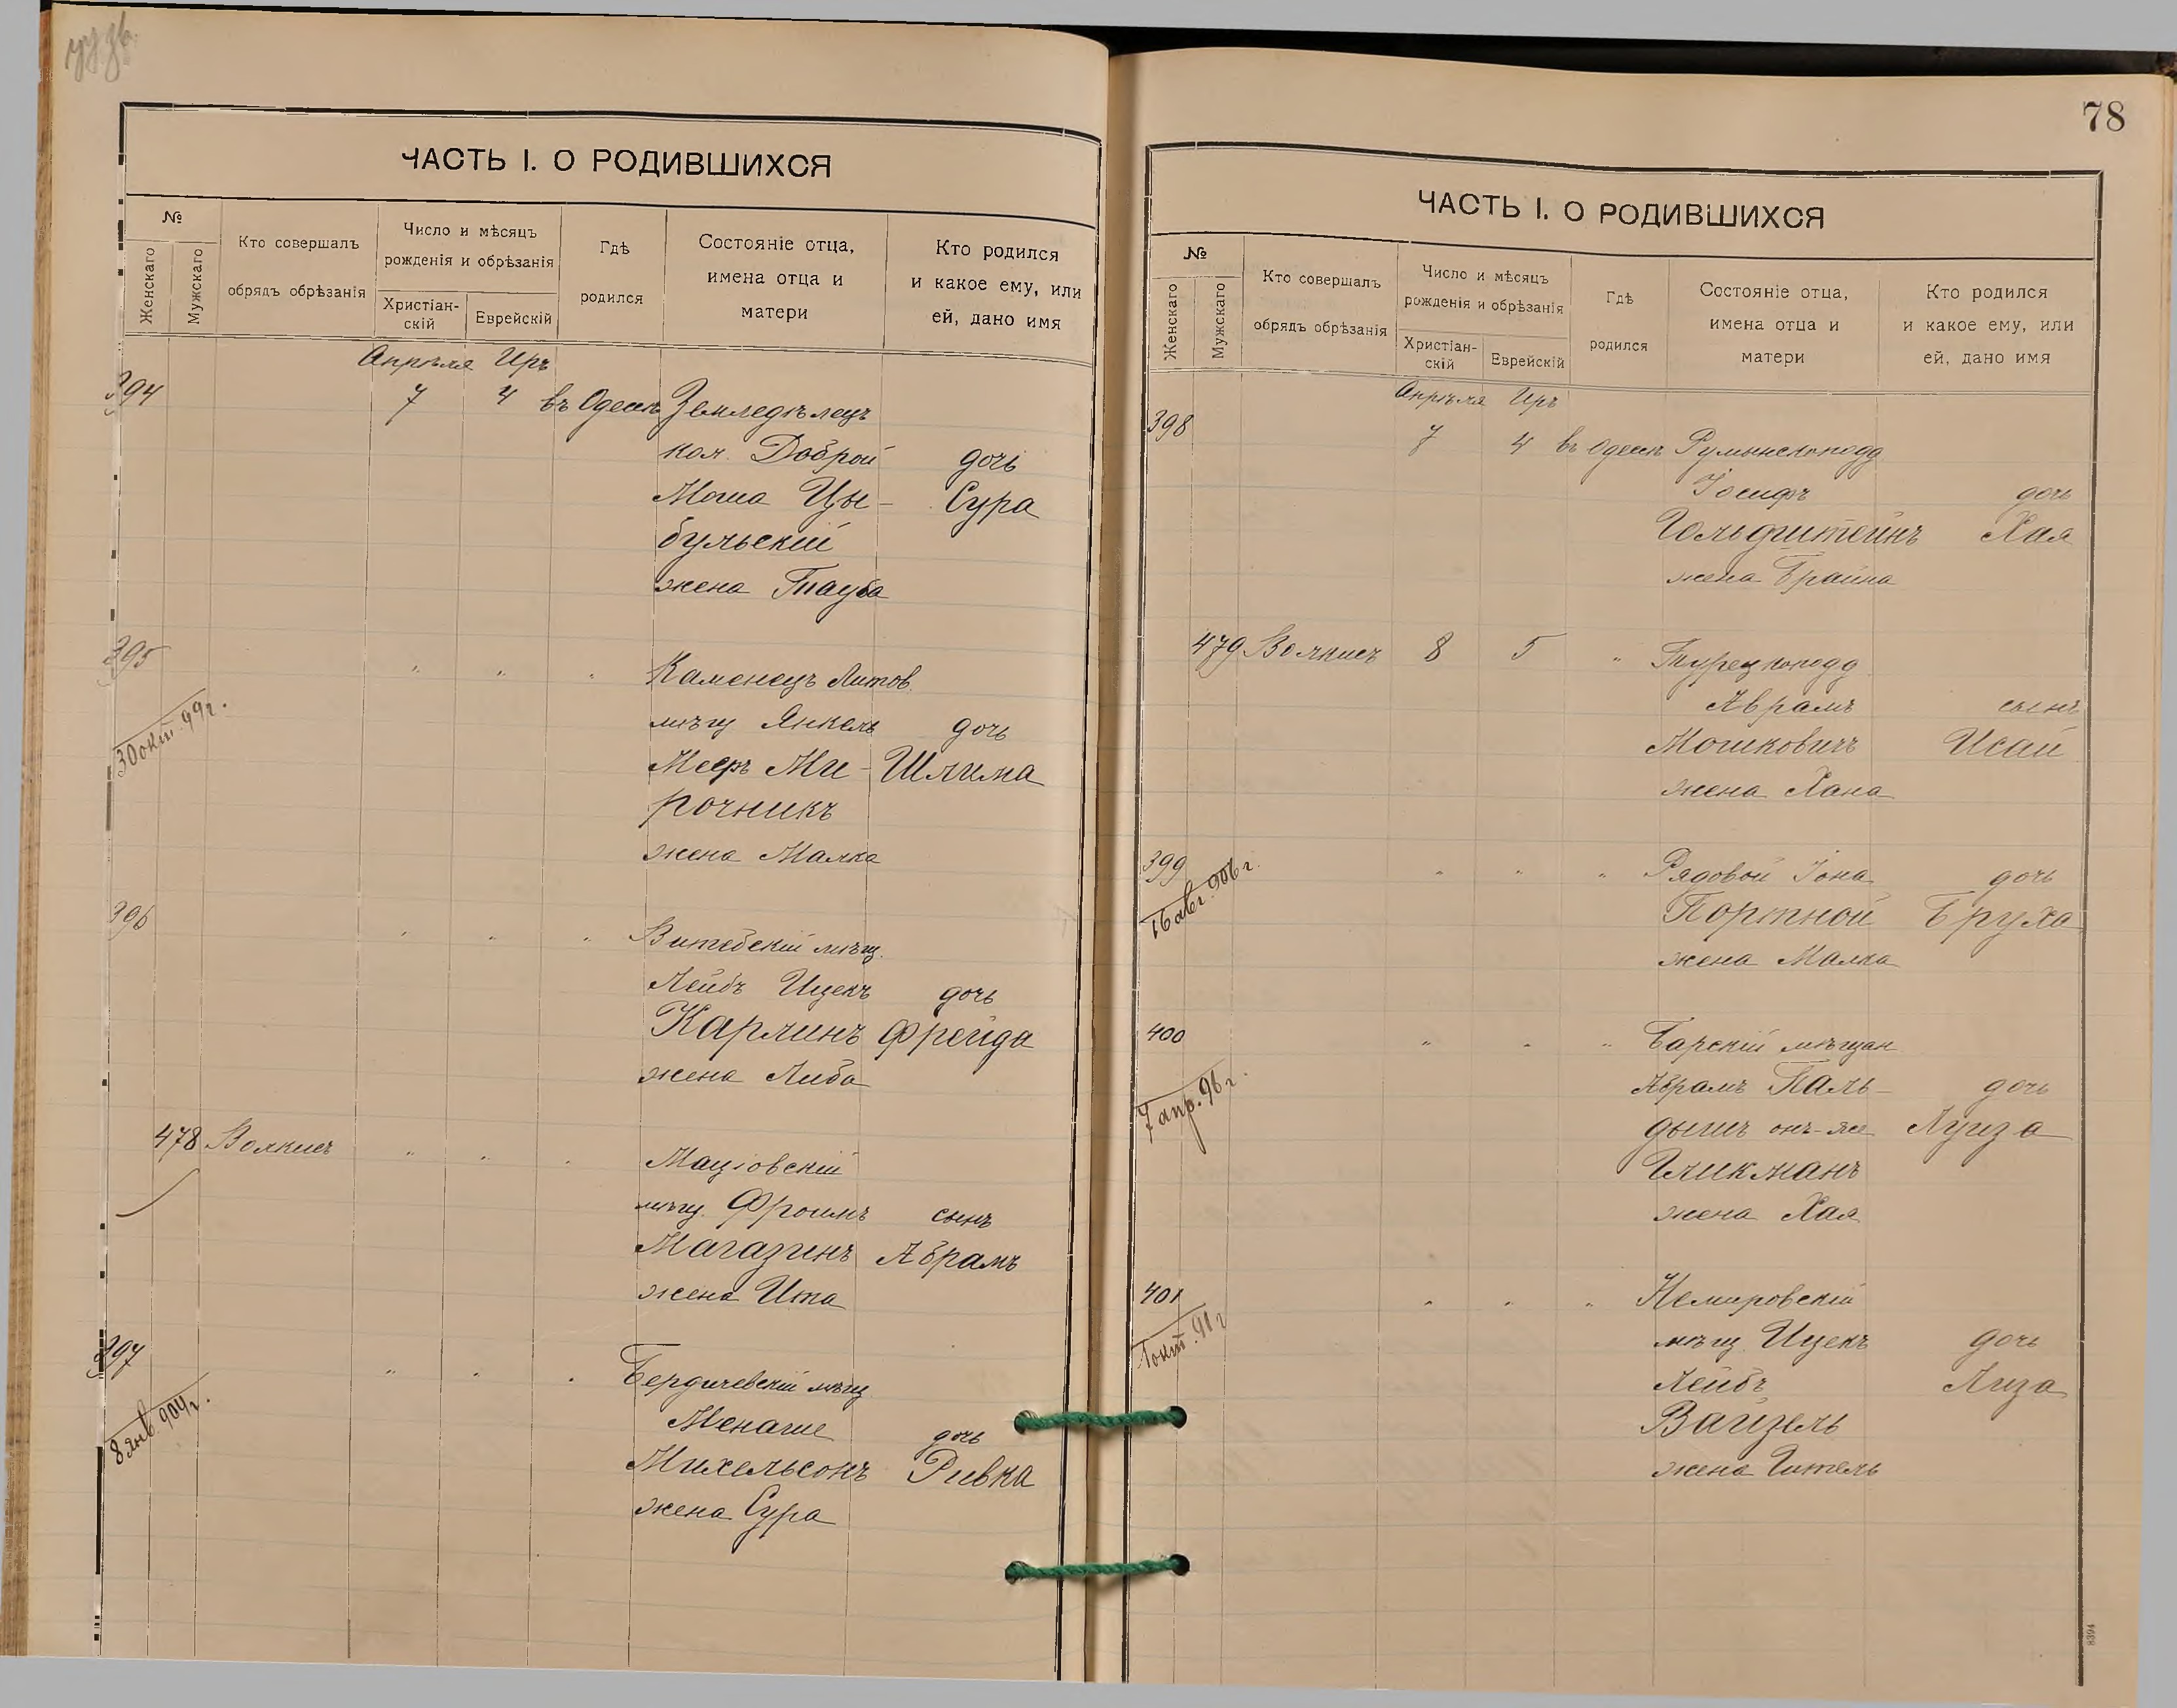 ЧАСТЬ I. О РОДИВШИХСЯ
№
Женскаго
Мужскаго
Кто совершалъ
обрядъ обрѣзанія
Число и мѣсяцъ
рожденія и обрѣзанія
Христіан-
скій
Еврейскій
Гдѣ
родился
Состояніе отца,
имена отца и
матери
Кто родился
и какое ему, или
ей, дано имя
Апрѣля Иръ
394 7 4 въ Одессѣ Земледѣлецъ
кол. Доброй дочь
Моша Цы- Сура
бульскій
жена Тауба
395 " " " Каменецъ Литов.
30 окт. 99 г.
мѣщ Янкель дочь
Мееръ Ми- Шлима
рочникъ
жена Малка
396 " " " Витебскій мѣщ.
Лейбъ Ицекъ дочь
Карлинъ Фрейда
жена Либа
478 Волкисъ " " " Маціовскій
мѣщ. Фроимъ сынъ
Магазинъ Абрамъ
жена Ита
397 " " " Бердичевскій мѣщ
8 янв. 904 г.
Менаше дочь
Михельсонъ Ривка
жена Сура
78
ЧАСТЬ I. О РОДИВШИХСЯ
№
Женскаго
Мужскаго
Кто совершалъ
обрядъ обрѣзанія
Число и мѣсяцъ
рожденія и обрѣзанія
Христіан-
скій
Еврейскій
Гдѣ
родился
Состояніе отца,
имена отца и
матери
Кто родился
и какое ему, или
ей, дано имя
Апрѣля Иръ
398 7 4 въ Одессѣ Румынскоподд
Іосифъ дочь
Гольдштейнъ Хая
жена Брайна
479 Волкисъ 8 5 " Турецкоподд
Аврамъ сынъ
Мошковичъ Исай
жена Хана
399 " " " Рядовой Іона дочь
16 авг. 906 г.
Портной Бруха
жена Малка
400 " " " Барскій мѣщан
Абрамъ Паль- дочь
7 апр. 96 г.
дышъ онъ-же Луиза
Гликманъ
жена Хая
401 " " " Немировскій
1 окт. 91 г
мѣщ Ицекъ дочь
Лейбъ Лиза
Вайзель
жена Гитель
8394